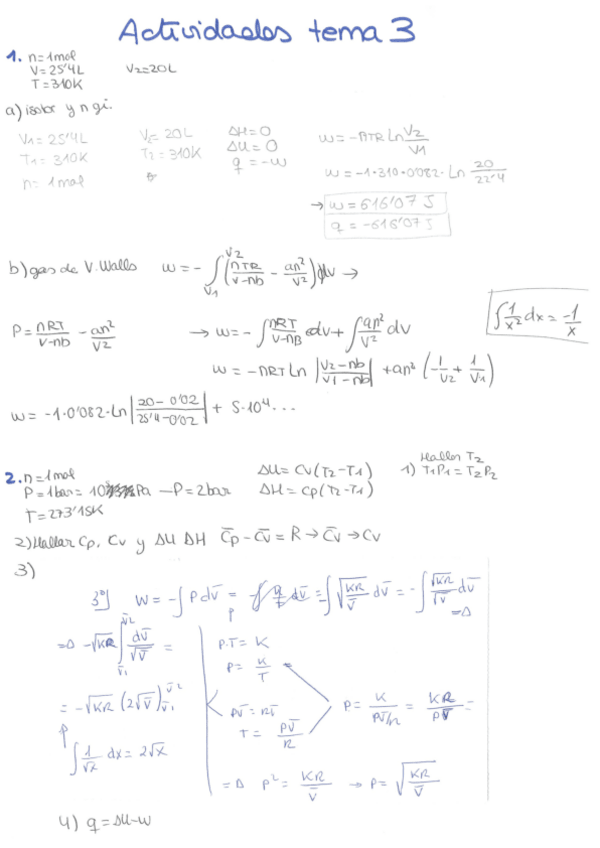 Actividades tema 3
1. n=1mol
V=25'4L V2=20L
T=310K
a) isoter y n gi.
V1=25'4L V2=20L ΔH=0 w=-nTR Ln V2/V1
T1=310K T2=310K ΔU=0
n=1mol q=-w w=-1·310·0'082·Ln 20/22'4
→ w=616'07 J
q=-616'07 J
b) gas de V.Walls w=-∫V1^V2 (nTR/(V-nb) - an²/V²) dv →
P=nRT/(V-nb) - an²/V² → w=-∫nRT/(V-nB) dv + ∫an²/V² dv ∫1/x² dx = -1/x
w=-nRT Ln |V2-nb/V1-nb| + an² (-1/V2 + 1/V1)
w=-1·0'082·Ln |20-0'02/25'4-0'02| + 5·10⁴...
2. n=1mol ΔU=Cv(T2-T1) 1) Hallar T2
P=1bar=10 Pa -P=2bar ΔH=Cp(T2-T1) T1P1=T2P2
T=273'15K
2) Hallar Cp, Cv y ΔU ΔH C̄p-C̄v=R→C̄v→Cv
3)
3º] W=-∫Pdv̄ = =-∫√(KR/v̄) dv̄ =-∫√KR/√v̄ dv̄ =Δ
=Δ -√KR ∫v̄1^v̄2 dv̄/√v̄ =
P·T=K
P=K/T
= -√KR (2√v̄)v̄1^v̄2
Pv̄=RT̄
T=Pv̄/R
P=K/(Pv̄/R) = KR/Pv̄ =
∫1/√x dx = 2√x
=Δ P²=KR/v̄ → P=√(KR/v̄)
4) q=ΔU-w